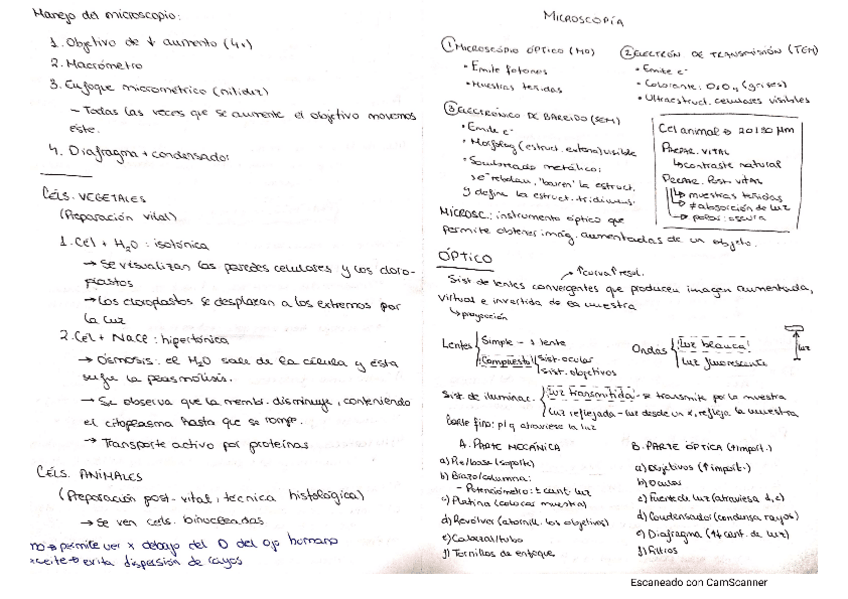 Manejo del microscopio:
1. Objetivo de ↓ aumento (4x)
2. Macrómetro
3. Enfoque micrométrico (nitidez)
- Todas las veces que se aumente el objetivo movemos
éste.
4. Diafragma + condensador
CÉLS. VEGETALES
(Preparación vital)
1. Cel + H₂O : isotónica
→ Se visualizan las paredes celulares y los cloro-
plastos
→ Los cloroplastos se desplazan a los extremos por
la luz
2. Cel + NaCl : hipertónica
→ Ósmosis: el H₂O sale de la célula y ésta
sufre la plasmólisis.
→ Se observa que la memb. disminuye, conteniendo
el citoplasma hasta que se rompe.
→ Transporte activo por proteínas
CÉLS. ANIMALES
(Preparación post-vital, técnica histológica)
→ Se ven cels. binucleadas
no → permite ver x debajo del D del ojo humano
aceite → evita dispersión de rayos
MICROSCOPÍA
① MICROSCÓPIO ÓPTICO (MO)
• Emite fotones
• Muestras teñidas
② ELECTRÓN. DE TRANSMISIÓN (TEM)
• Emite e⁻
• Colorante: O₄ (grises)
• Ultraestruct. celulares visibles
③ ELECTRÓNICO DE BARRIDO (SEM)
• Emite e⁻
• Morfolog (estruct. externa) visible
• Sombreado metálico:
e⁻ rebotan, "barren" la estruct.
y define la estruct. tridimens.
Cel animal → 20/30 µm
PREPAR. VITAL
↳ contraste natural
PREPAR. POST-VITAL
↳ muestras teñidas
→ ≠ absorción de luz
→ oscura
MICROSC.: instrumento óptico que
permite obtener imág. aumentadas de un objeto.
ÓPTICO
↗ curva ↑ resol.
Sist. de lentes convergentes que producen imagen aumentada,
virtual e invertida de la muestra
↳ proyección
Lentes Simple - 1 lente
Compuesto sist. ocular
sist. objetivos
Ondas luz blanca
luz fluorescente
luz
Sist. de iluminac. luz transmitida - se transmite por la muestra
luz reflejada - luz desde un x, refleja la muestra
Corte fino: p/q atraviese la luz
A. PARTE MECÁNICA
a) Pie/base (soporte)
b) Brazo/columna:
- Potenciómetro: ± cant. luz
c) Platina (colocar muestra)
d) Revólver (atornill. los objetivos)
e) Cabezal/tubo
f) Tornillos de enfoque
B. PARTE ÓPTICA (+import.)
a) Objetivos (↑ import.)
b) Ocular
c) Fuente de luz (atraviesa d, c)
d) Condensador (condensa rayos)
e) Diafragma (↑↓ cant. de luz)
f) Filtros
Escaneado con CamScanner